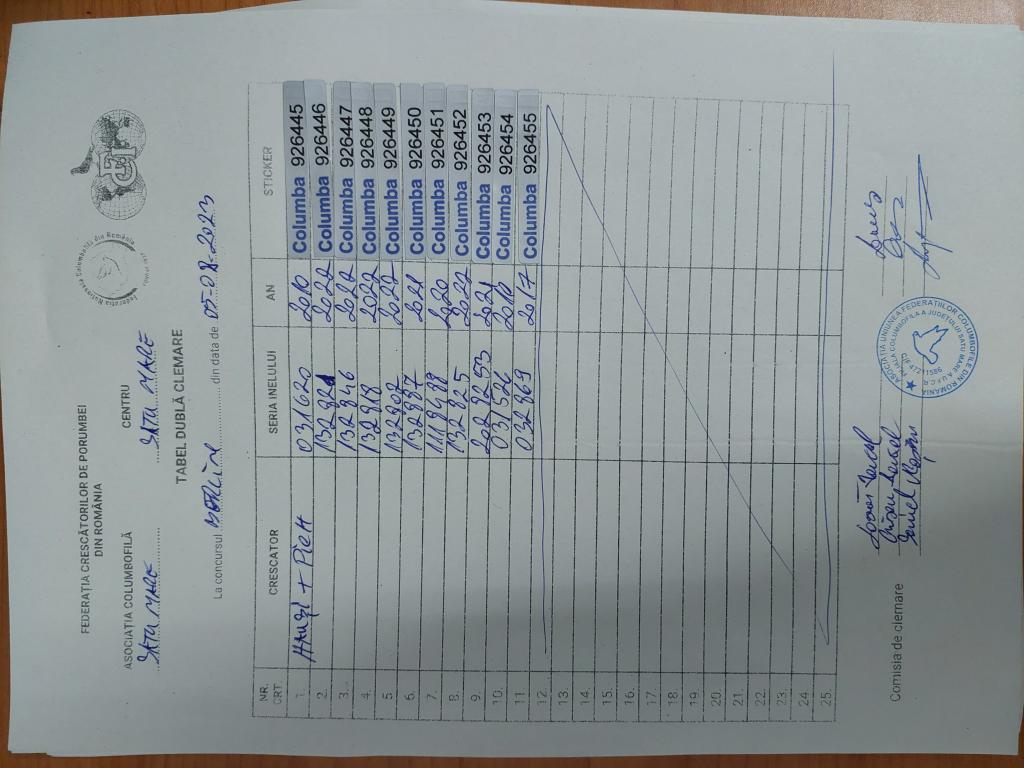 FEDERAȚIA CRESCĂTORILOR DE PORUMBEI
DIN ROMÂNIA
Federația Națională Columbofilă din România
ASOCIAȚIA COLUMBOFILĂ CENTRU
SATU MARE SATU MARE
TABEL DUBLĂ CLEMARE
La concursul BERLIN din data de 05-08-2023
NR. CRT. CRESCATOR SERIA INELULUI AN STICKER
1. + Pien 031620 2010 Columba 926445
2. 2022 Columba 926446
3. 132946 2022 Columba 926447
4. 132918 2022 Columba 926448
5. 132907 2022 Columba 926449
6. 132937 2021 Columba 926450
7. 2020 Columba 926451
8. 132825 2022 Columba 926452
9. 2021 Columba 926453
10. 031526 2010 Columba 926454
11. 032869 2017 Columba 926455
12.
13.
14.
15.
16.
17.
18.
19.
20.
21.
22.
23.
24.
25.
Comisia de clemare
ASOCIAȚIA UNIUNEA FEDERAȚIILOR COLUMBOFILE DIN ROMÂNIA
FILIALA COLUMBOFILA A JUDEȚULUI SATU MARE A.U.F.C.R.
CIF 47211586